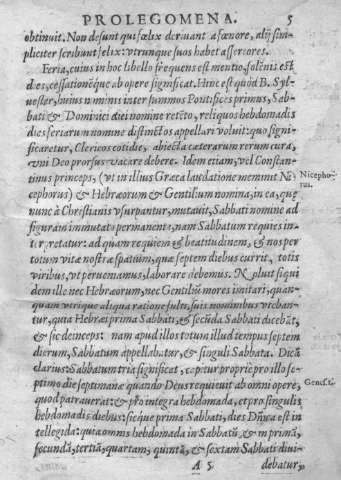 PROLEGOMENA. 5
obtinuit. Non desunt qui fœlix deriuant a fœnore, alij sim-
pliciter scribunt felix: vtrunque suos habet assertores.
Feria, cuius in hoc libello frequens est mentio, solẽnis est
dies, cessationẽque ab opere significat. Hinc est quòd B. Syl-
uester, huius nominis inter summos Pontifices primus, Sab-
bati & Dominici diei nomine retẽto, reliquos hebdomadis
dies feriarum nomine distinctos appellari voluit: quo signi-
ficaretur, Clericos cotidie, abiecta cæterarum rerum cura,
vni Deo prorsus vacare debere. Idem etiam, vel Constan-
tinus princeps, (vt in illius Græca laudatione meminit Ni-
cephorus) & Hebræorum & Gentilium nomina, in ea, quę
nunc à Christianis vsurpantur, mutauit, Sabbati nomine ad
figuram immutato permanente, nam Sabbatum requies in-
terpretatur: ad quam requiem & beatitudinem, & nos per
totum vitæ nostræ spatium, quæ septem diebus currit, totis
viribus, vt perueniamus, laborare debemus. Noluit siqui
dem ille nec Hebræorum, nec Gentiliũ mores imitari, quan-
quam vtrique aliqua ratione fulti, suis nominibus vteban-
tur, quia Hebræi prima Sabbati, & secũda Sabbati dicebãt,
& sic deinceps: nam apud illos totum illud tempus septem
dierum, Sabbatum appellabatur, & singuli Sabbata. Dicã
clarius: Sabbatum tria significat, capitur propriè pro illo se-
ptimo die septimanæ quando Deus requieuit ab omni opere,
quod patrauerat: & pro integra hebdomada, et pro singulis
hebdomadis diebus: sicque prima Sabbati, dies Dñica est in
tellegida: quia omnis hebdomada in Sabbatũ, & in primã,
secundã, tertiã, quartam, quintã, & sextam Sabbati diui-
A 5 debatur,
Nicepho-
rus.
Genes. ii.